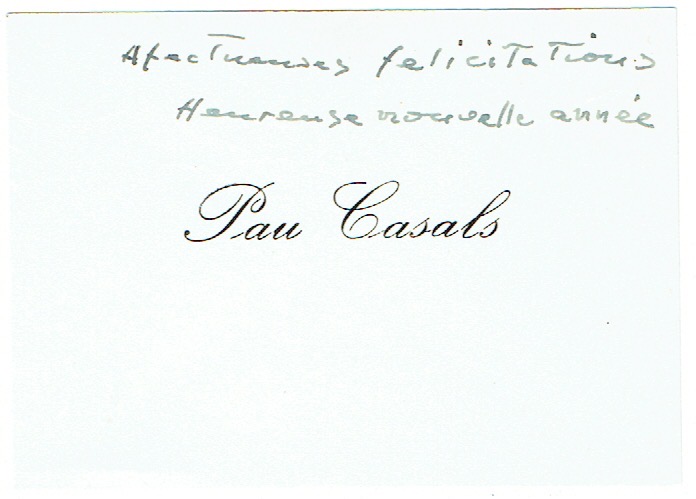 Afectueuses felicitations
Heureuse nouvelle année
Pau Casals